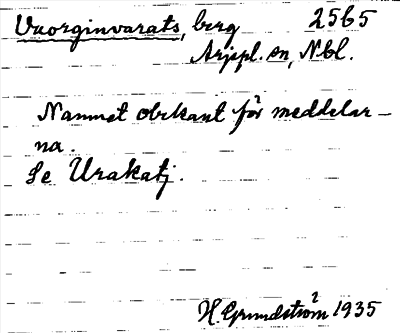 Vuorginvarats, berg 2565
Arjepl. sn, Nbl.
Namnet obekant för meddelar-
na.
Se Urakatj.
H. Grundström 1935